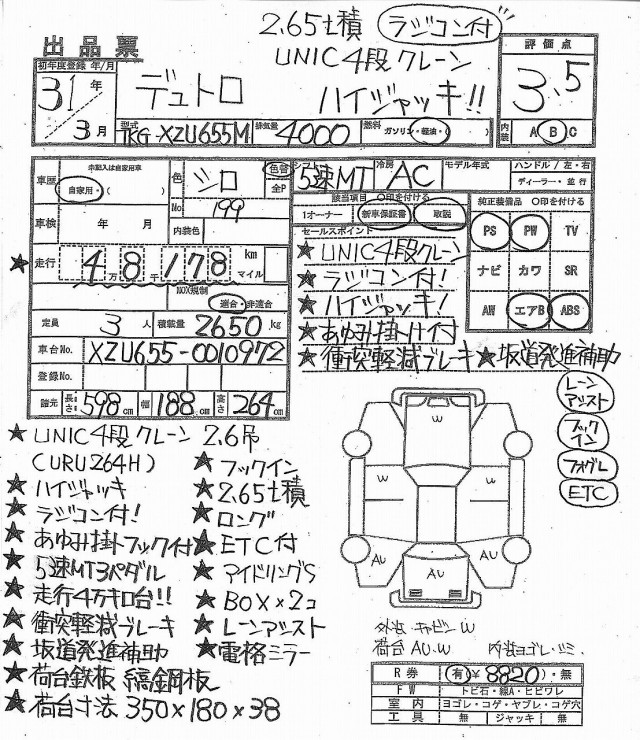 2.65t積 ラジコン付
UNIC4段クレーン
ハイジャッキ!!
出品票
初年度登録 年/月
31年
3月
デュトロ
評価点
3.5
内装 A B C
型式 TKG-XZU655M 排気量 4000 燃料 ガソリン・軽油・( )
車歴 未記入は自家用車
自家用・( )
色 シロ 色替 全P
No. 199
内装色
車検 年 月
★走行 4万8千178 km マイル
NOX規制 適合・非適合
定員 3人 積載量 2650kg
車台No. XZU655-0010972
登録No.
諸元 長さ 598cm 幅 188cm 高さ 264cm
シフト 5速MT 冷房 AC モデル年式 ハンドル/左・右
ディーラー・並行
該当項目 ○印を付ける
1オーナー 新車保証書 取説
純正装備品 ○印を付ける
PS PW TV
ナビ カワ SR
AW エアB ABS
セールスポイント
★UNIC4段クレーン
★ラジコン付!
★ハイジャッキ!
★あゆみ掛け付
★衝突軽減ブレーキ★坂道発進補助
レーンアシスト
フックイン
フォグL
ETC
★UNIC4段クレーン 2.6吊
(URU264H)
★フックイン
★ハイジャッキ
★2.65t積
★ラジコン付!
★ロング
★あゆみ掛フック付
★ETC付
★5速MT3ペダル
★アイドリングS
★走行4万キロ台!!
★BOX×2コ
★衝突軽減ブレーキ
★レーンアシスト
★坂道発進補助
★電格ミラー
★荷台鉄板 縞鋼板
★荷台寸法 350×180×38
W
W
W
W
AU
AU
AU
外装 キャビン W
荷台 AU.W 内装ヨゴレ・シミ
R券 (有)¥ 8820)・無
FW トビ石・線A・ヒビワレ
室内 ヨゴレ・コゲ・ヤブレ・コゲ穴
工具 無 ジャッキ 無